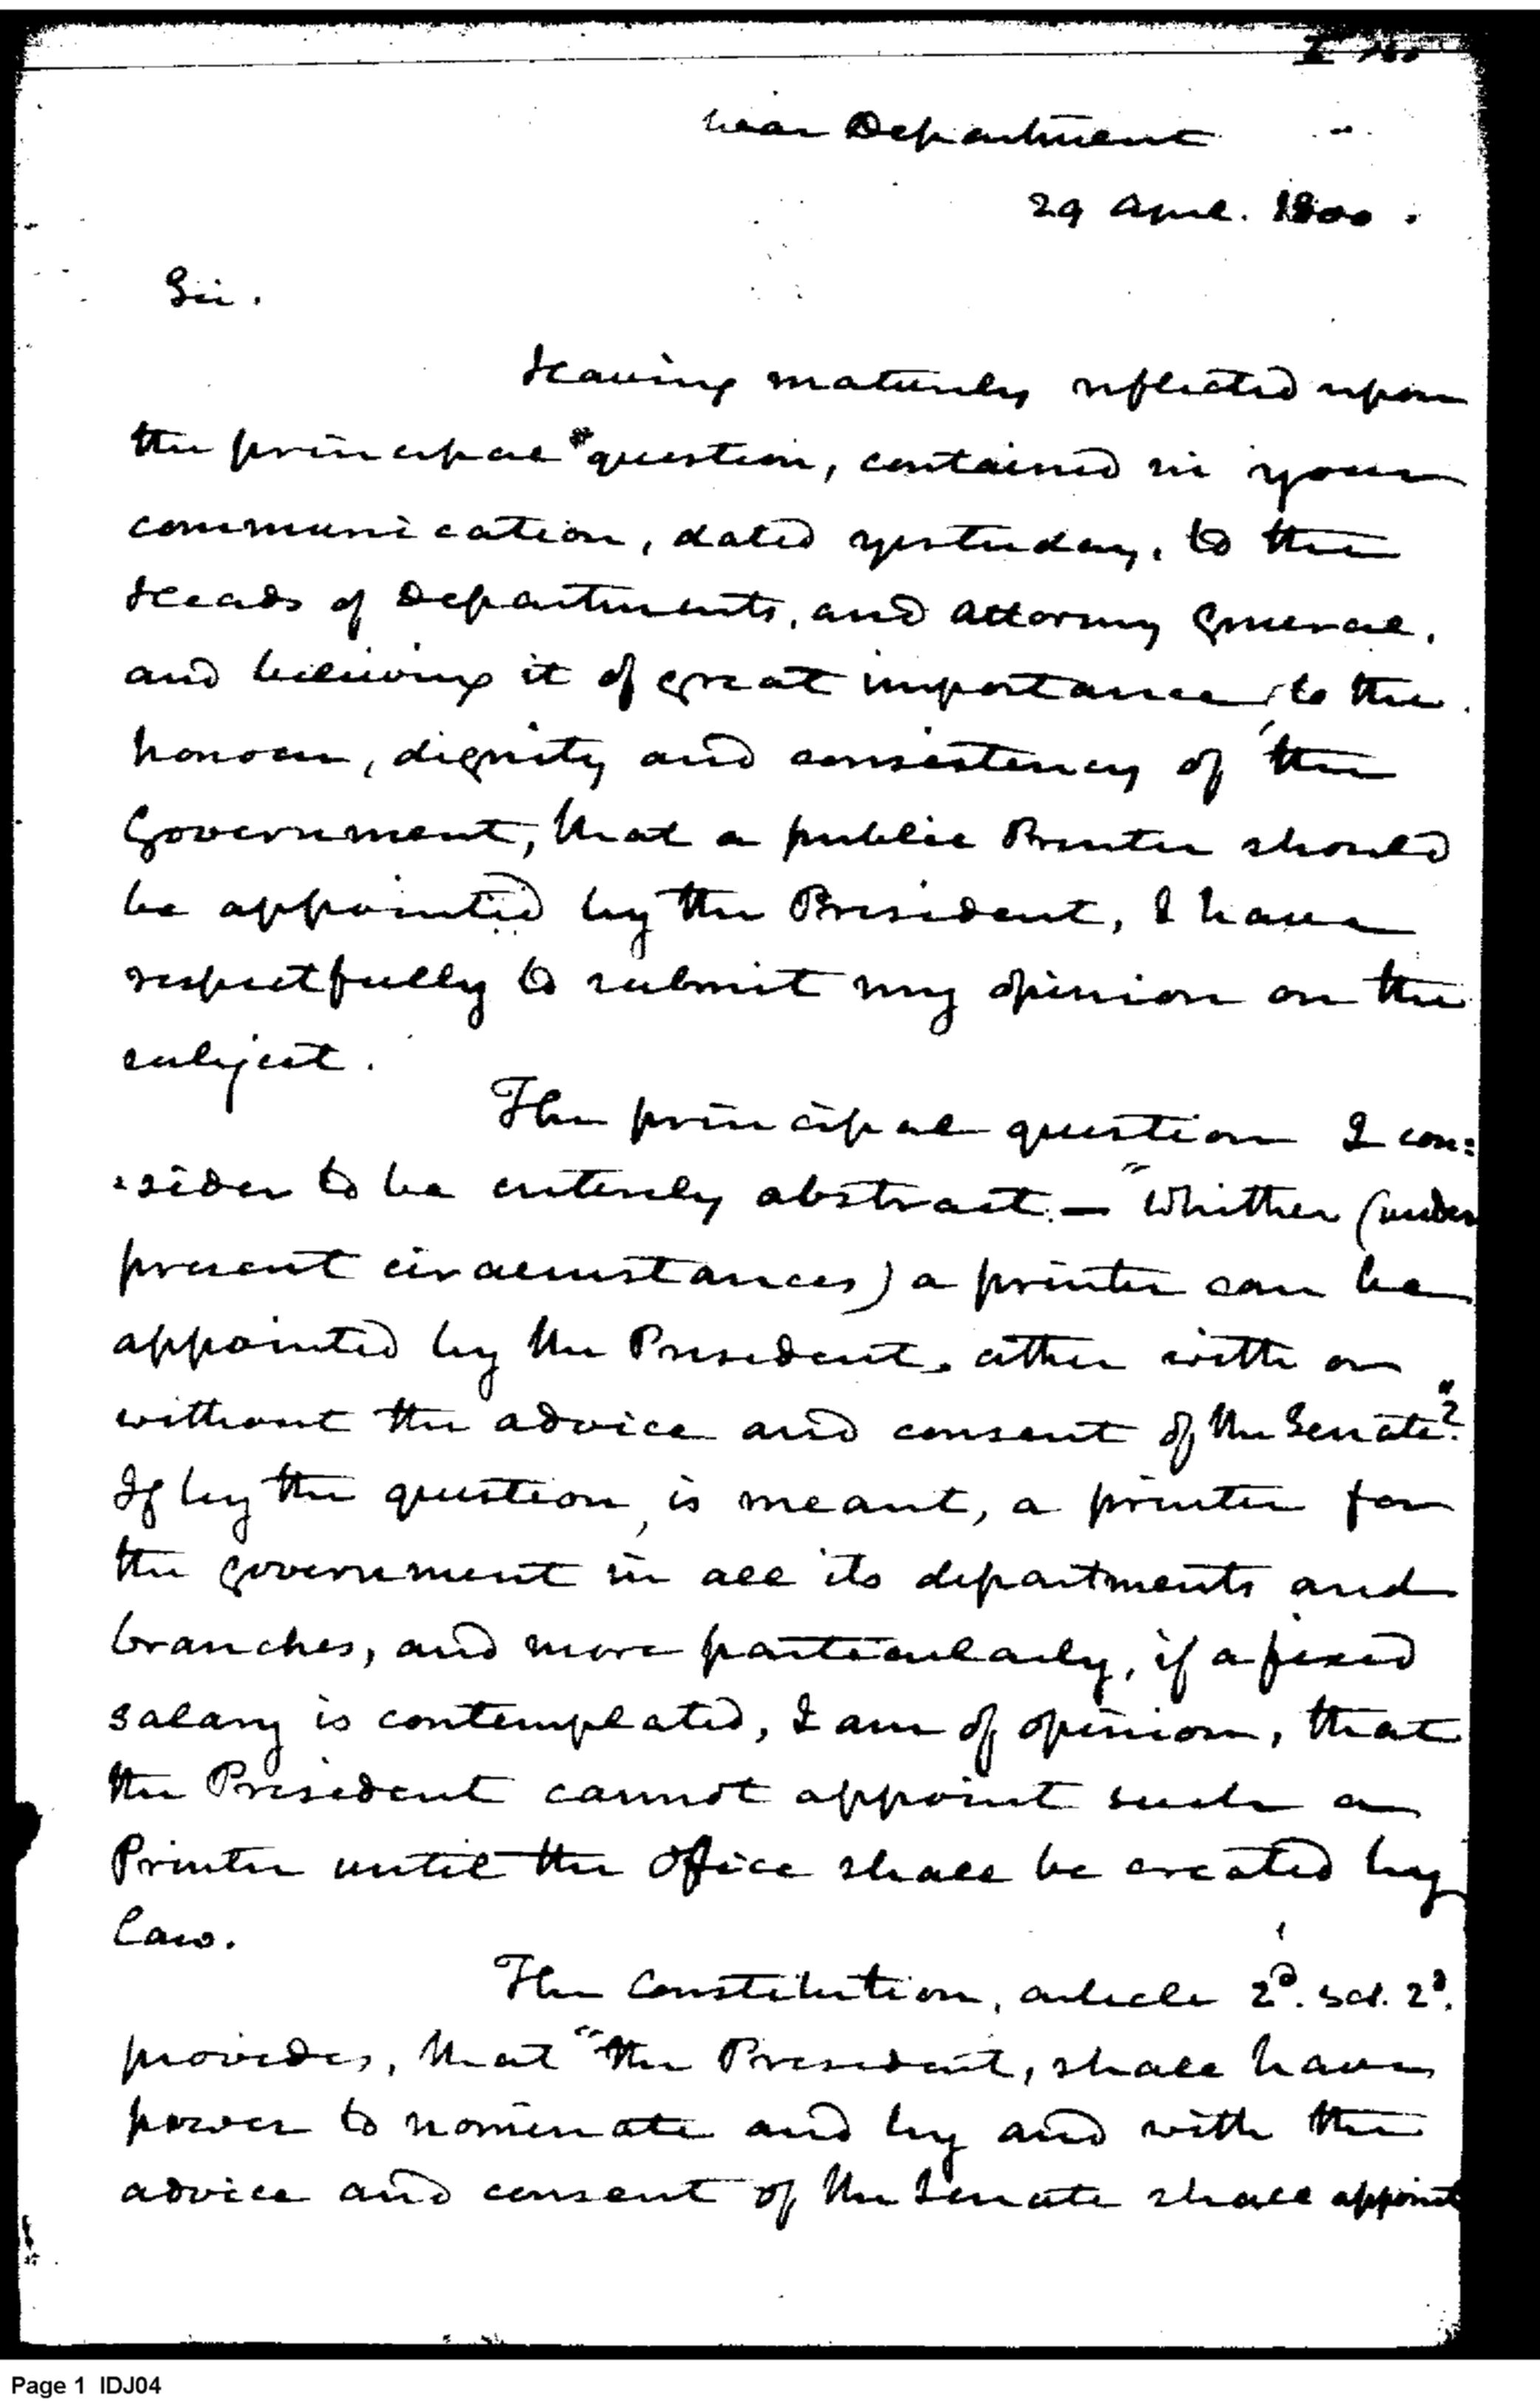 War Department
29 April. 1800.
Sir.
Having maturely reflected upon
the principal * question, contained in your
communication, dated yesterday, to the
Heads of Departments, and Attorny General,
and believing it of great importance to the
honour, dignity and consistency of the
Government, that a public Printer should
be appointed by the President, I have
respectfully to submit my opinion on the
subject.
The principal question I con:
:sider to be entirely abstract.— "Whither (under
present circumstances) a printer can be
appointed by the President, either with or
without the advice and consent of the Senate"?
If by the question, is meant, a printer for
the government in all its departments and
branches, and more particularly, if a fixed
salary is contemplated, I am of opinion, that
the President cannot appoint such a
Printer until the office shall be created by
law.
The Constitution, article 2d. Sect. 2d.
provides, that "the President, shall have
power to nominate and by and with the
advice and consent of the Senate shall appoint
Page 1 IDJ04